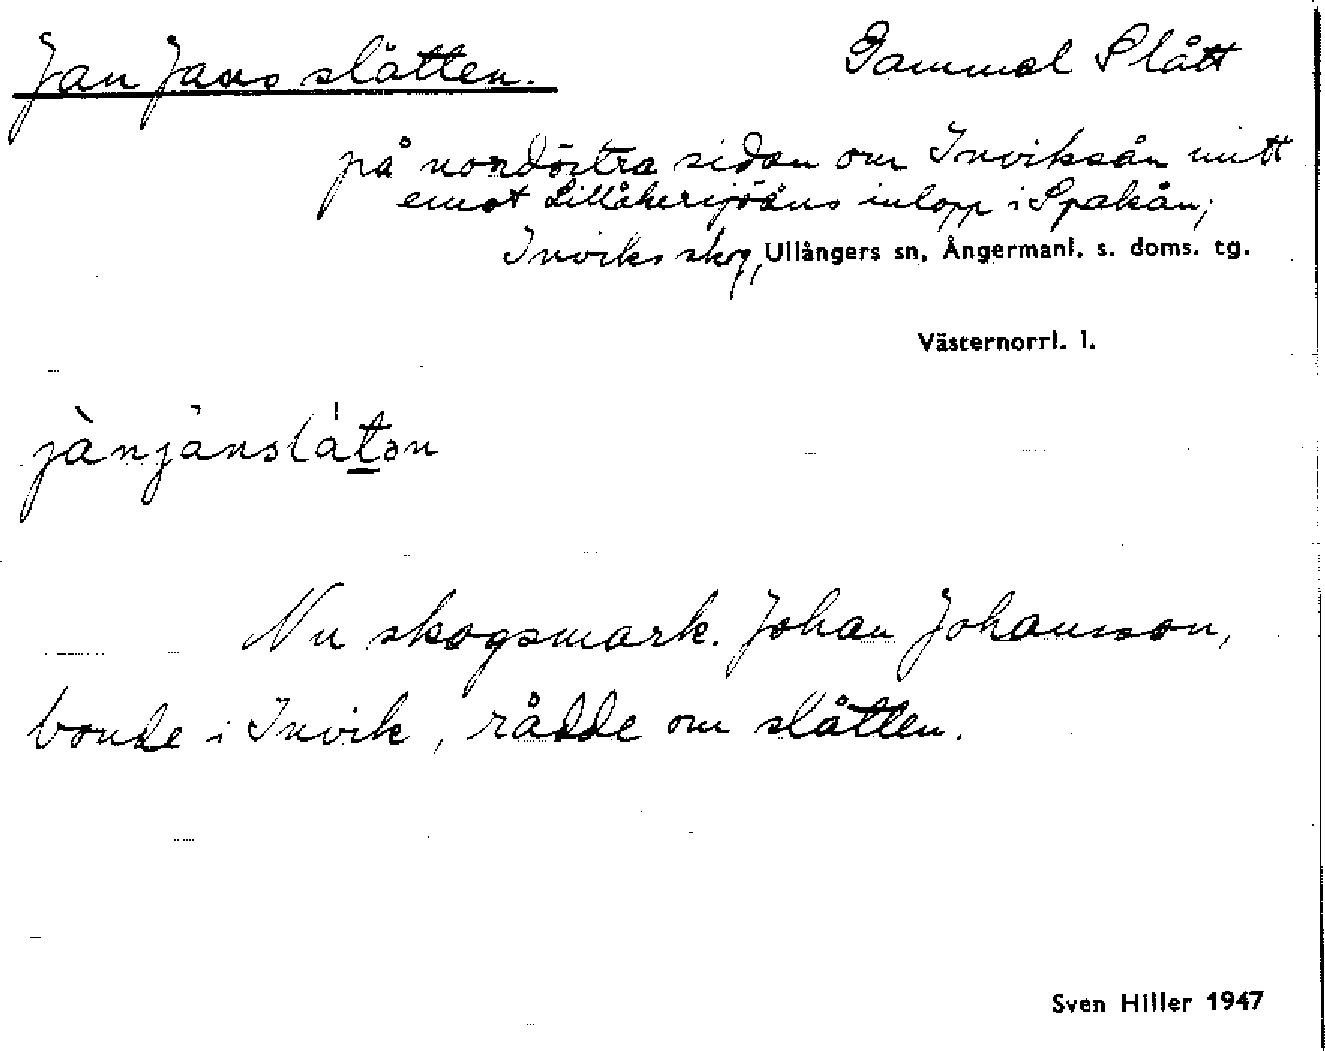 Jan Jans slåtten. Gammal Slått
på nordöstra sidan om Inviksån mitt
emot Lillåkersjöåns inlopp i Spakån;
Inviks skog, Ullångers sn, Ångermanl. s. doms. tg.
Västernorrl. l.
jànjànslåtən
Nu skogsmark. Johan Johansson,
bonde i Invik, rådde om slåtten.
Sven Hiller 1947